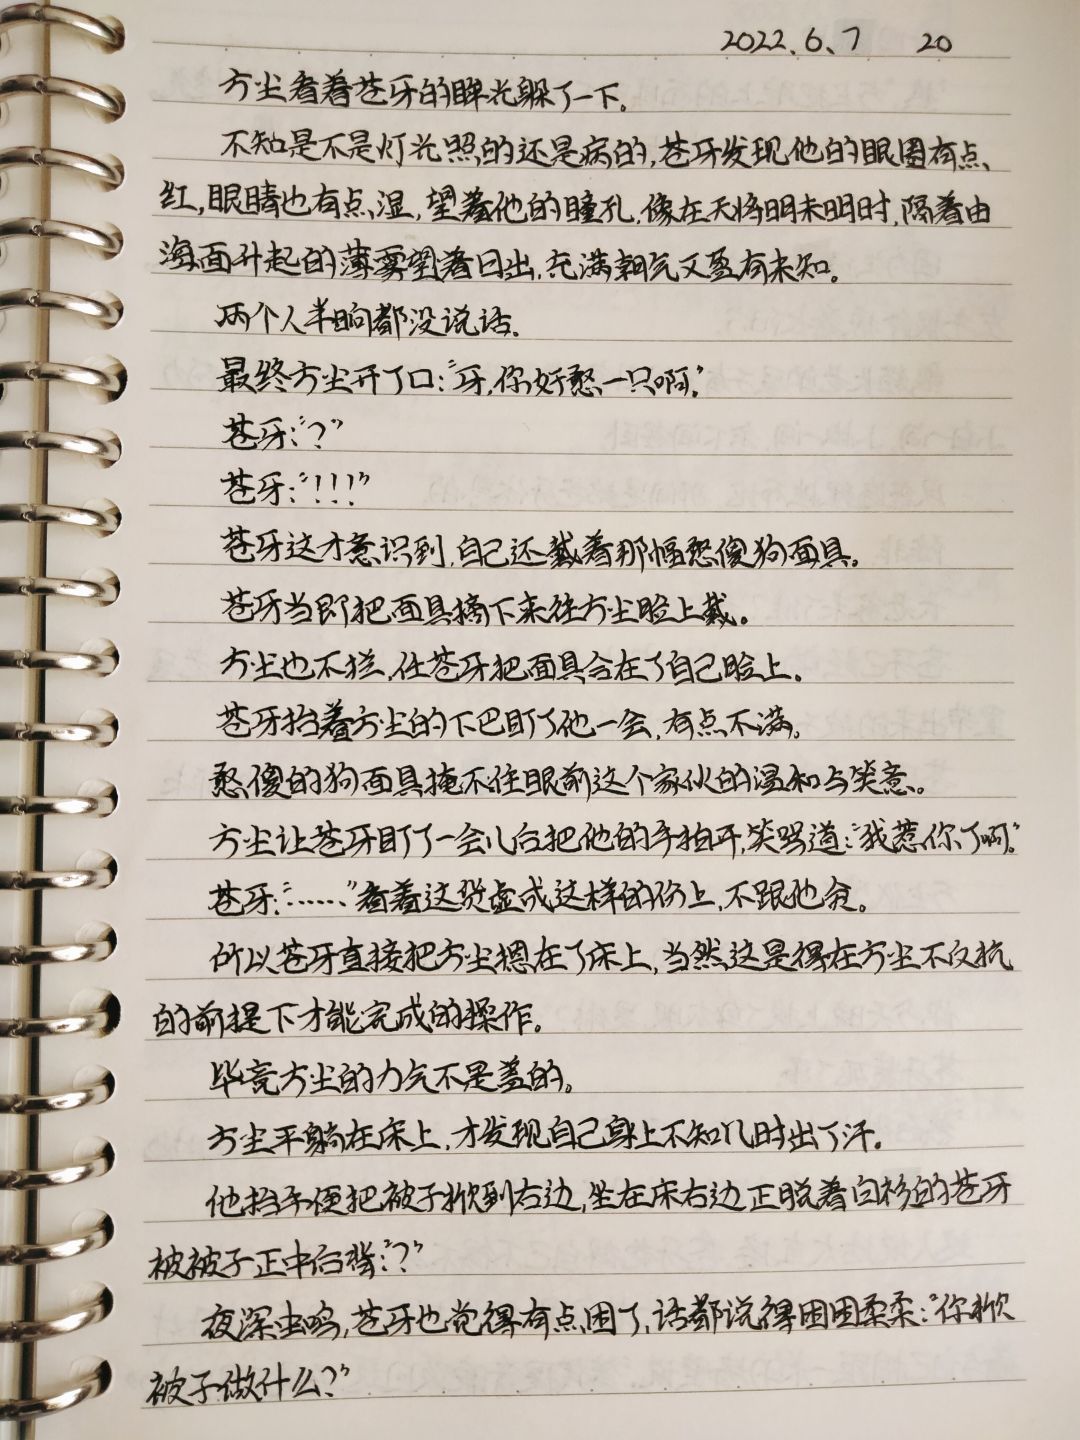 2022.6.7 20
方尘看着苍牙的眸光躲了一下。
不知是不是灯光照的还是病的，苍牙发现他的眼圈有点
红，眼睛也有点湿，望着他的瞳孔，像在天将明未明时，隔着由
海面升起的薄雾望着日出，充满朝气又盈有未知。
两个人半晌都没说话。
最终方尘开了口：“牙，你好憨一只啊。”
苍牙：“？”
苍牙：“！！！”
苍牙这才意识到，自己还戴着那幅憨傻狗面具。
苍牙当即把面具摘下来往方尘脸上戴。
方尘也不拦，任苍牙把面具合在了自己脸上。
苍牙抬着方尘的下巴盯了他一会，有点不满。
憨傻的狗面具掩不住眼前这个家伙的温和与笑意。
方尘让苍牙盯了一会儿后把他的手拍开，笑骂道：“我惹你了啊。”
苍牙：“……”看着这货虚成这样的份上，不跟他贫。
所以苍牙直接把方尘摁在了床上，当然这是得在方尘不反抗
的前提下才能完成的操作。
毕竟方尘的力气不是盖的。
方尘平躺在床上，才发现自己身上不知几时出了汗。
他抬手便把被子掀到右边，坐在床右边正脱着白衫的苍牙
被被子正中后背：“？”
夜深虫鸣，苍牙也觉得有点困了，话都说得困困柔柔：“你掀
被子做什么？”